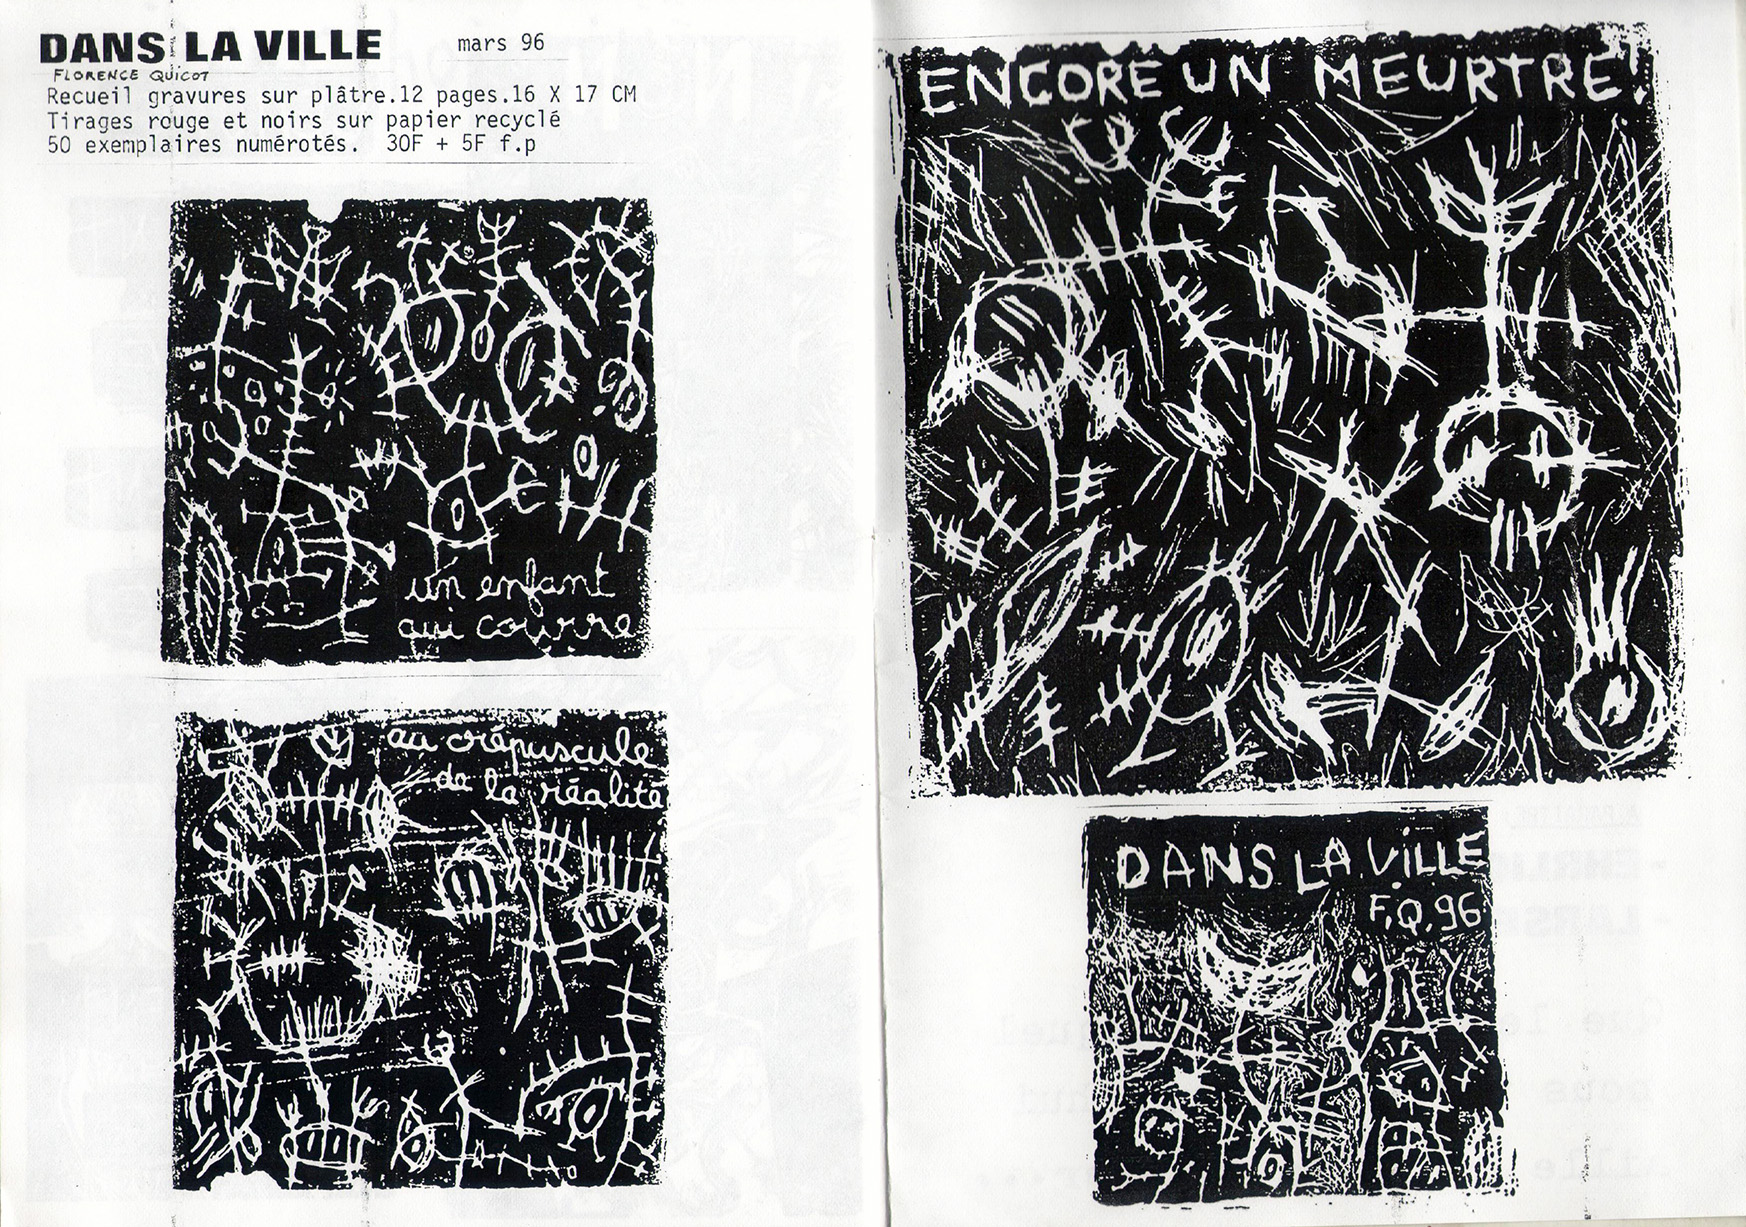 DANS LA VILLE mars 96
FLORENCE QUICOT
Recueil gravures sur plâtre.12 pages.16 X 17 CM
Tirages rouge et noirs sur papier recyclé
50 exemplaires numérotés. 30F + 5F f.p
un enfant
qui courre
au crépuscule
de la réalité
ENCORE UN MEURTRE!
DANS LA ViLLE
F.Q.96